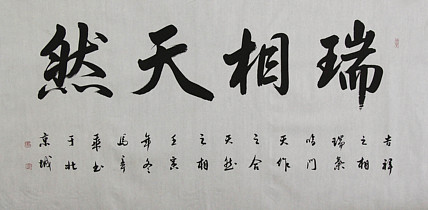 瑞相天然
吉祥
之相
瑞
鸣门
天作
之合
天然
之相
壬寅
年冬
马
书
于北
京城